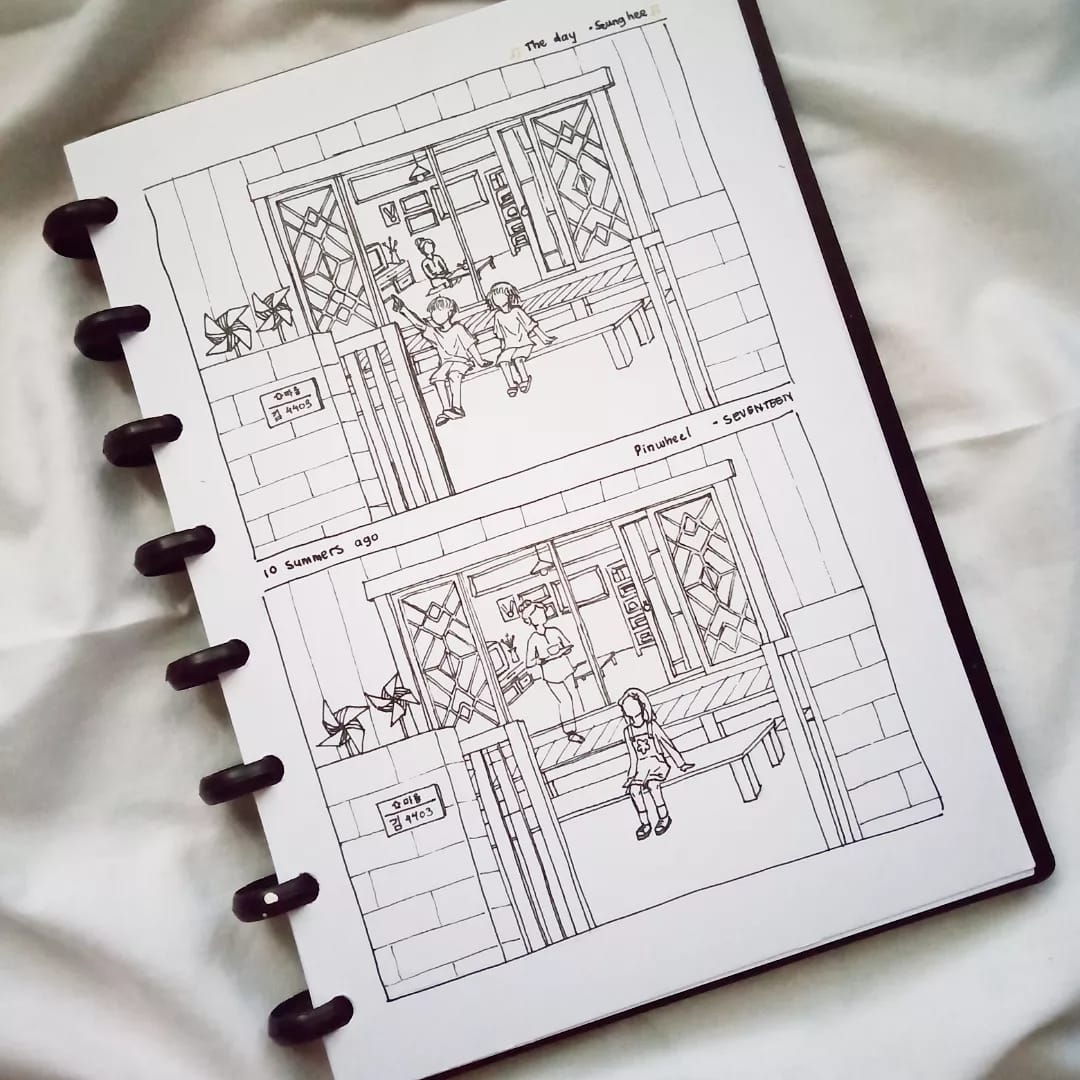 The day - Seung hee
☆마을
김 4403
Pinwheel - SEVENTEEN
10 summers ago
☆마을
김 4403